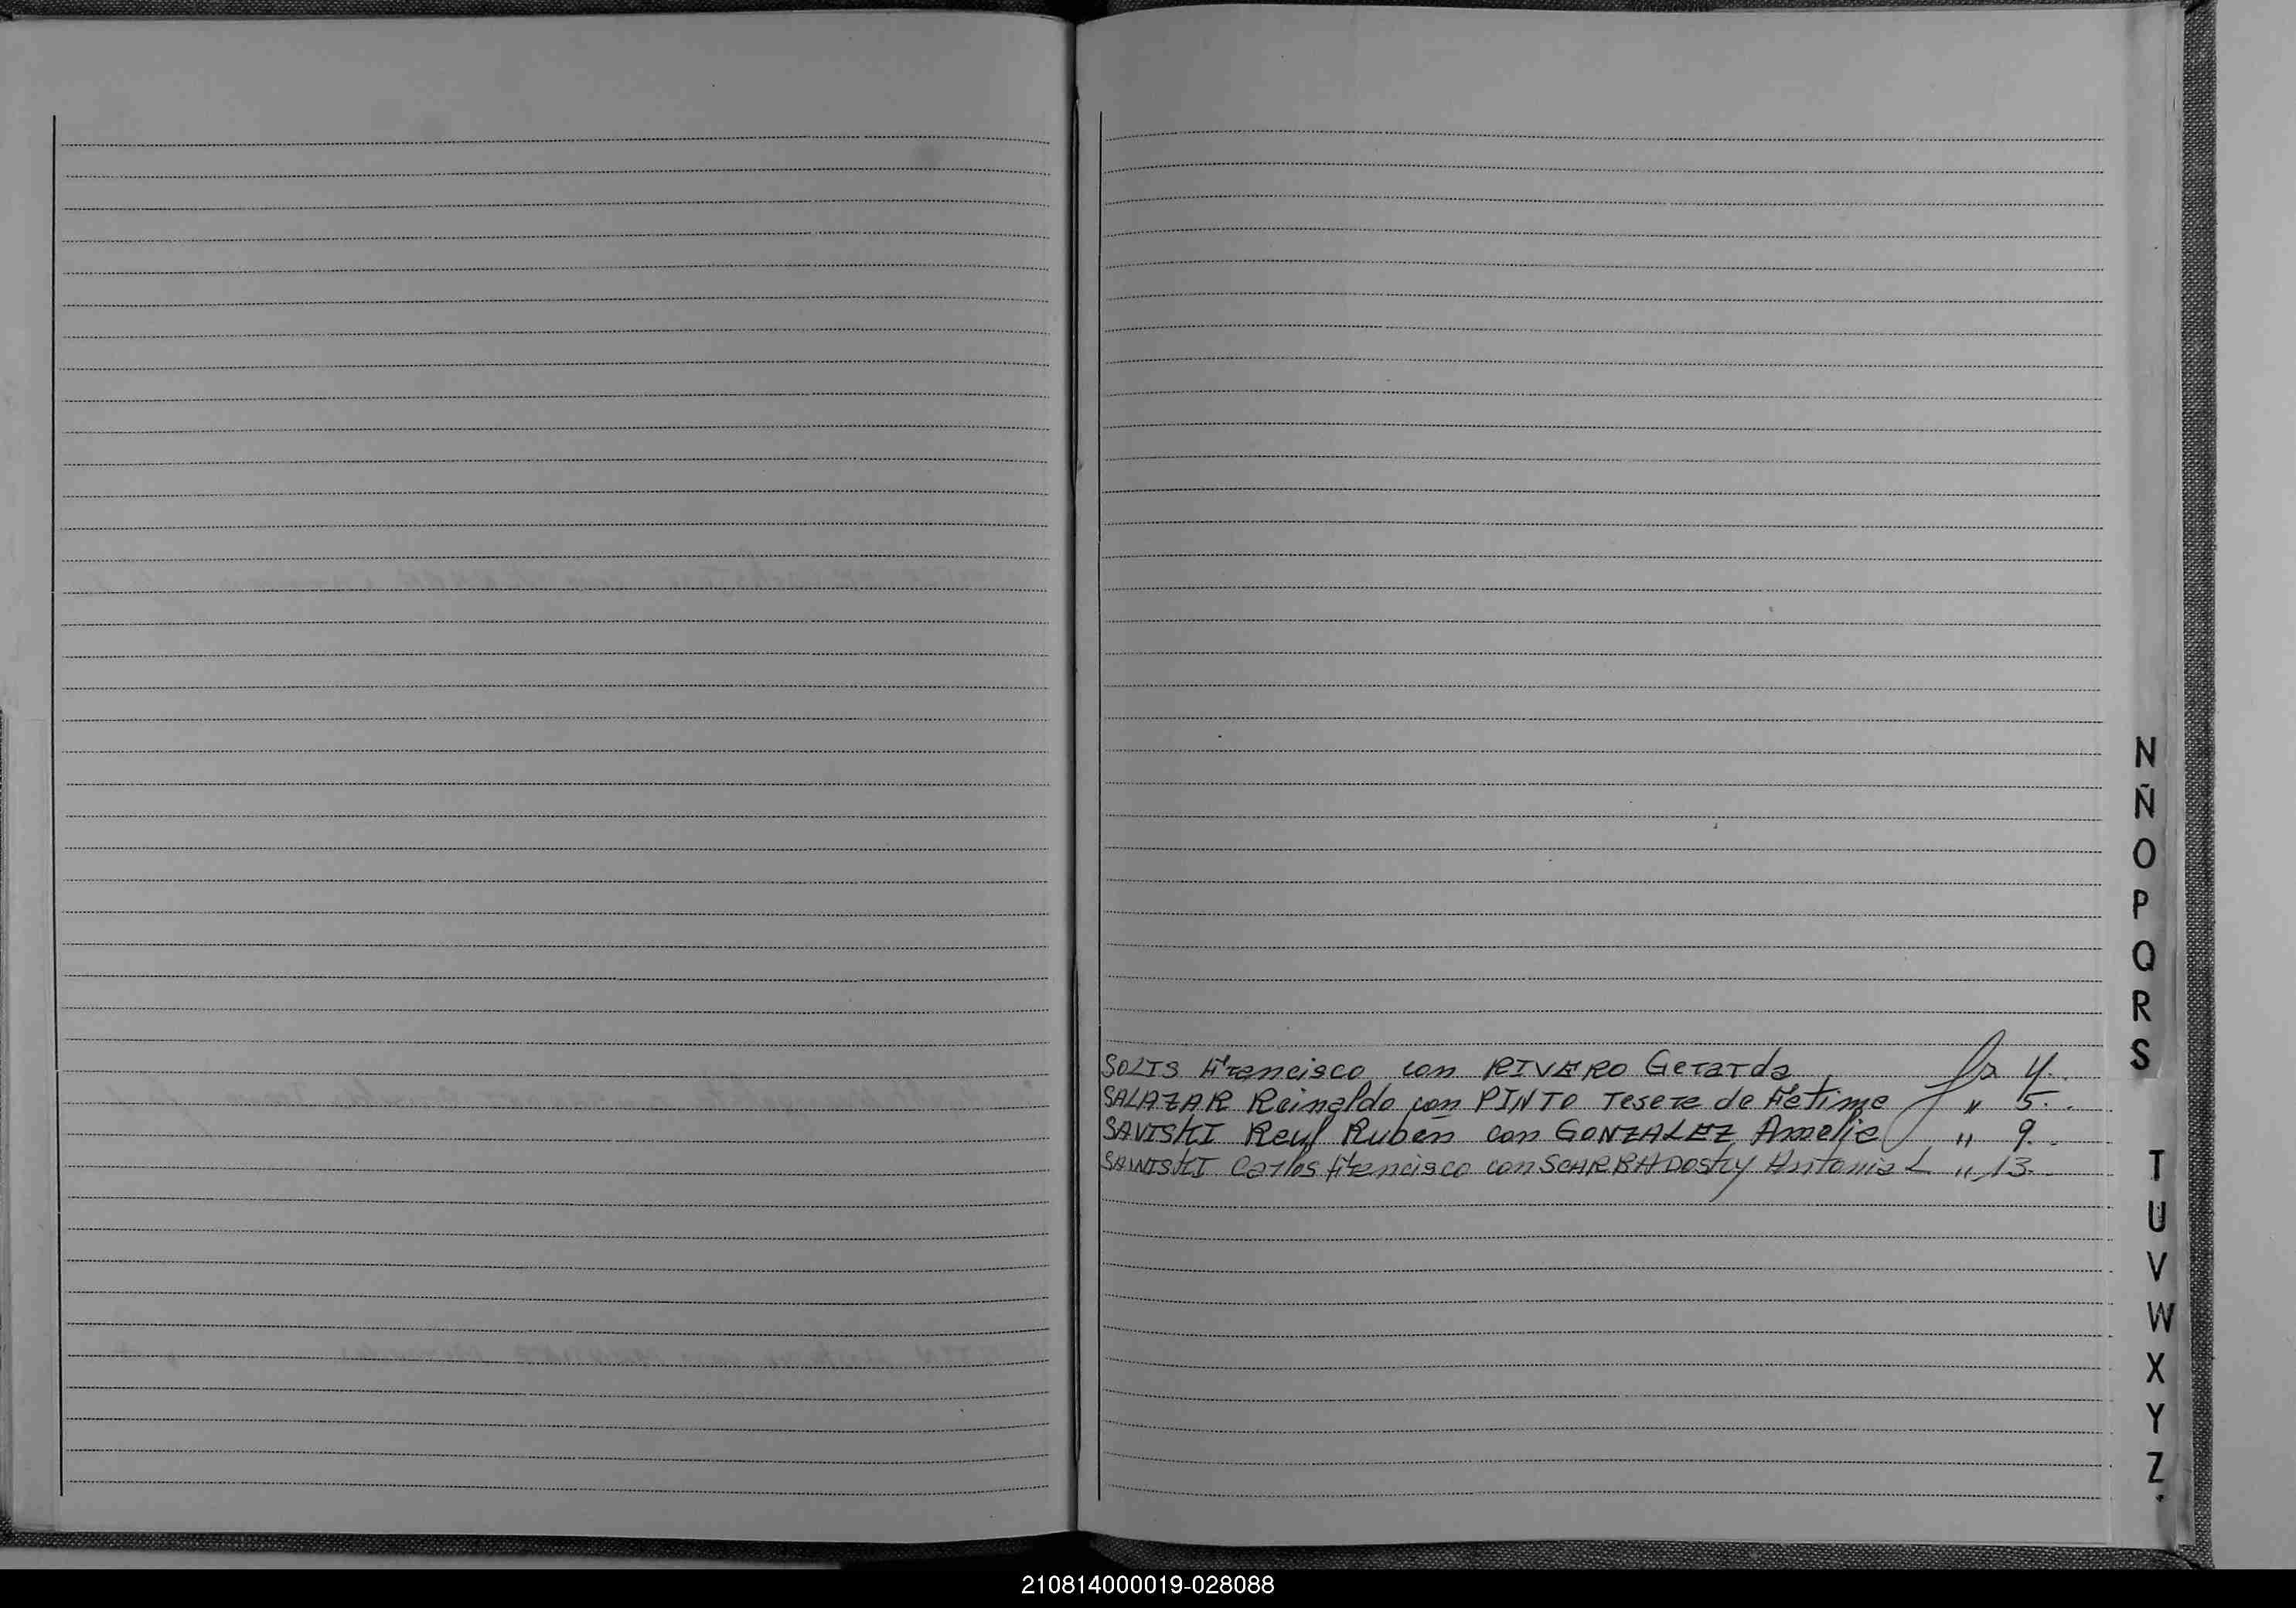 SOLIS Francisco con RIVERO Gerarda fs 4.
SALAZAR Reinaldo con PINTO Teresa de Fátima " 5.
SAVISKI Raul Rubén con GONZALEZ Amelia " 9.
SAWISKI Carlos Francisco con Antonia L " 13.
N
Ñ
O
P
Q
R
S
T
U
V
W
X
Y
Z
210814000019-028088